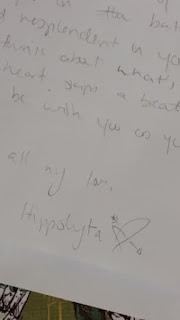 in the bat
resplendent in yo
think about what,
heart skips a beat
be with you as yo
all my lov,
Hippolyta